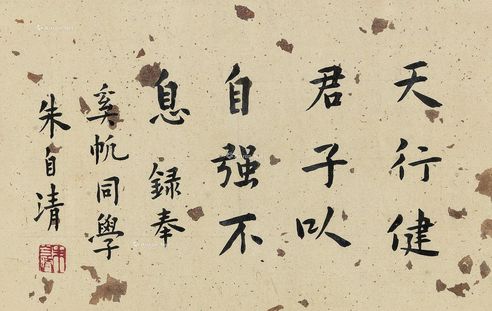 天行健
君子以
自强不
息 録奉
奚帆同學
朱自清